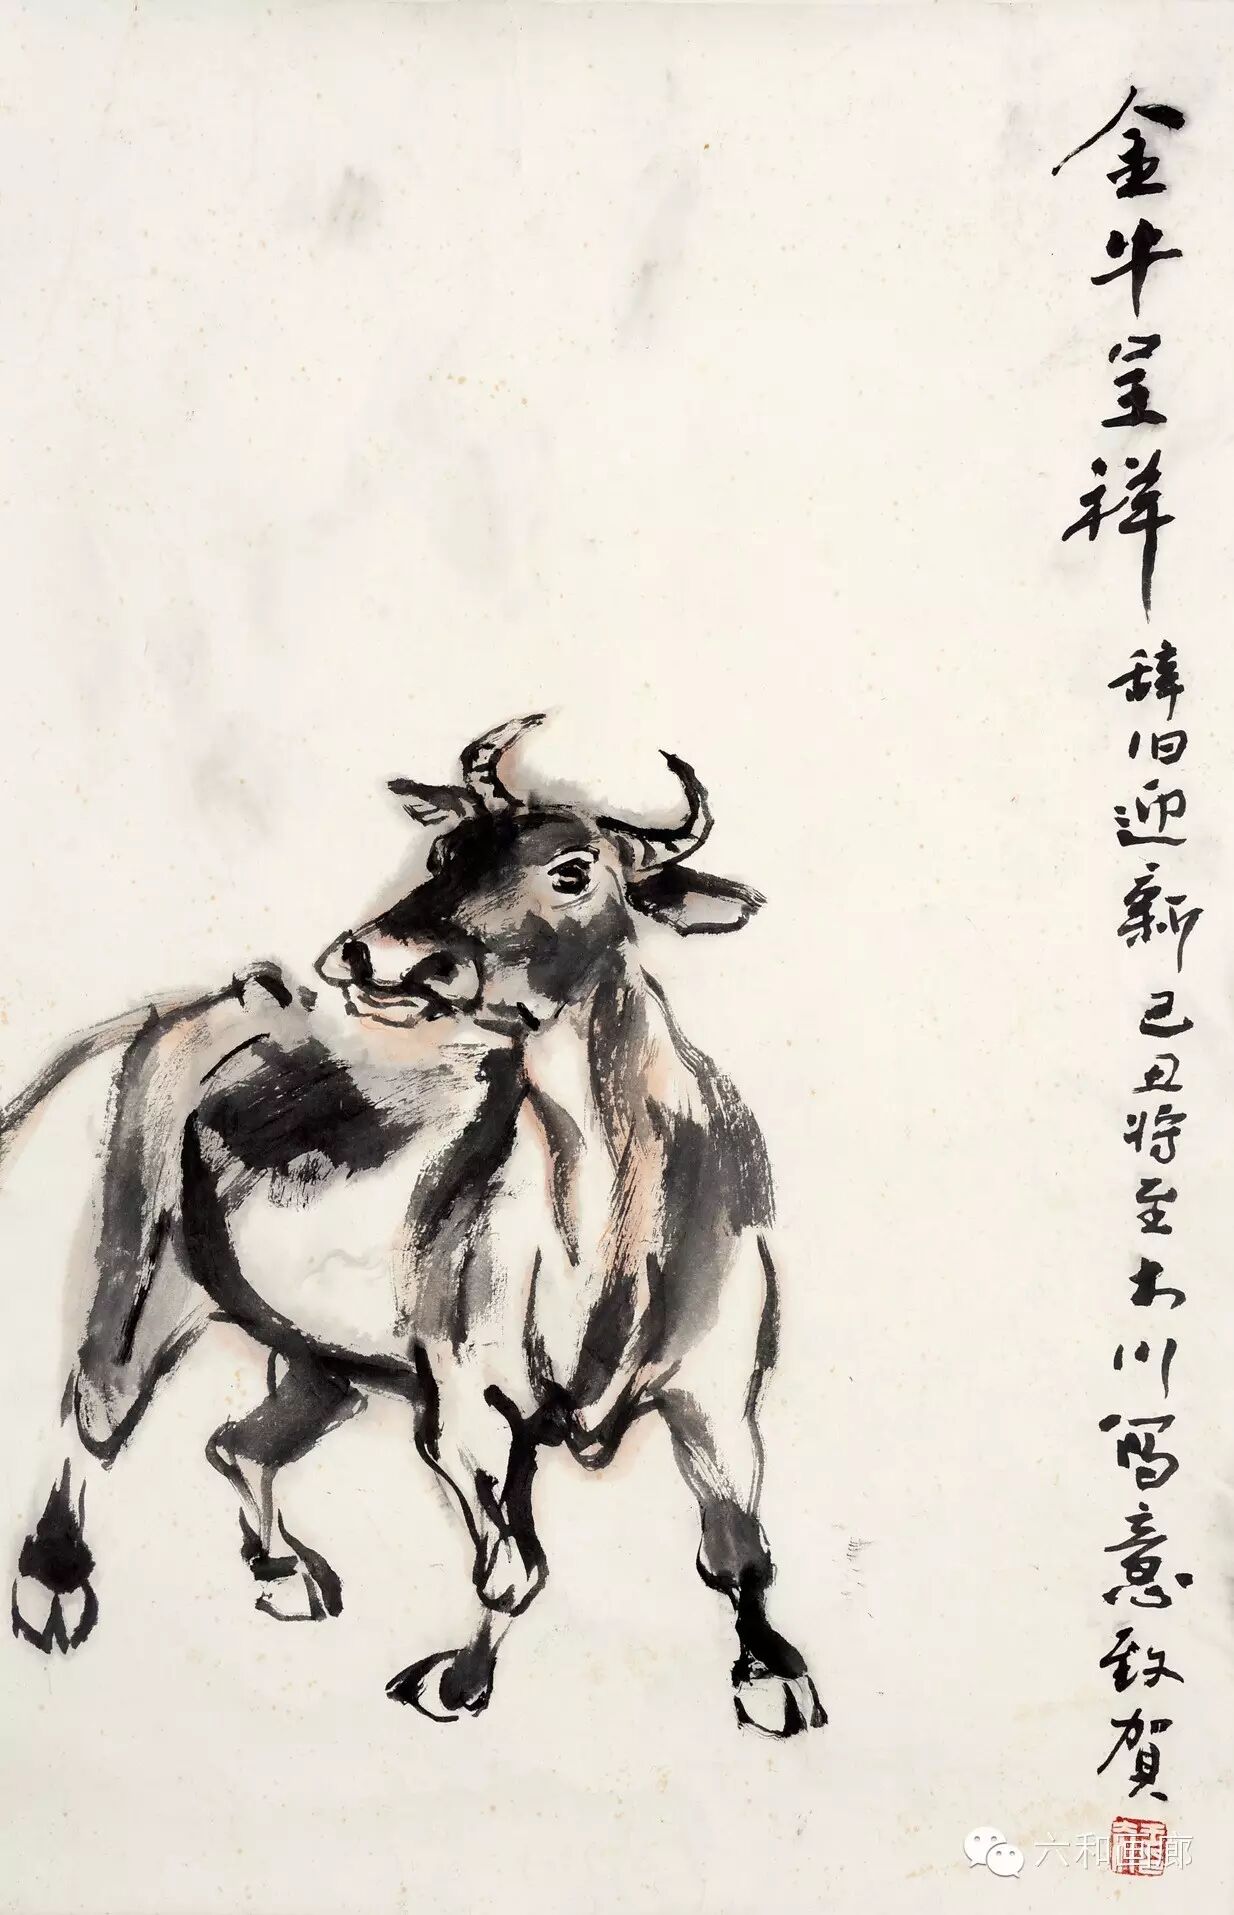 金牛呈祥 辞旧迎新 己丑将至 木川写意致贺
六和画廊